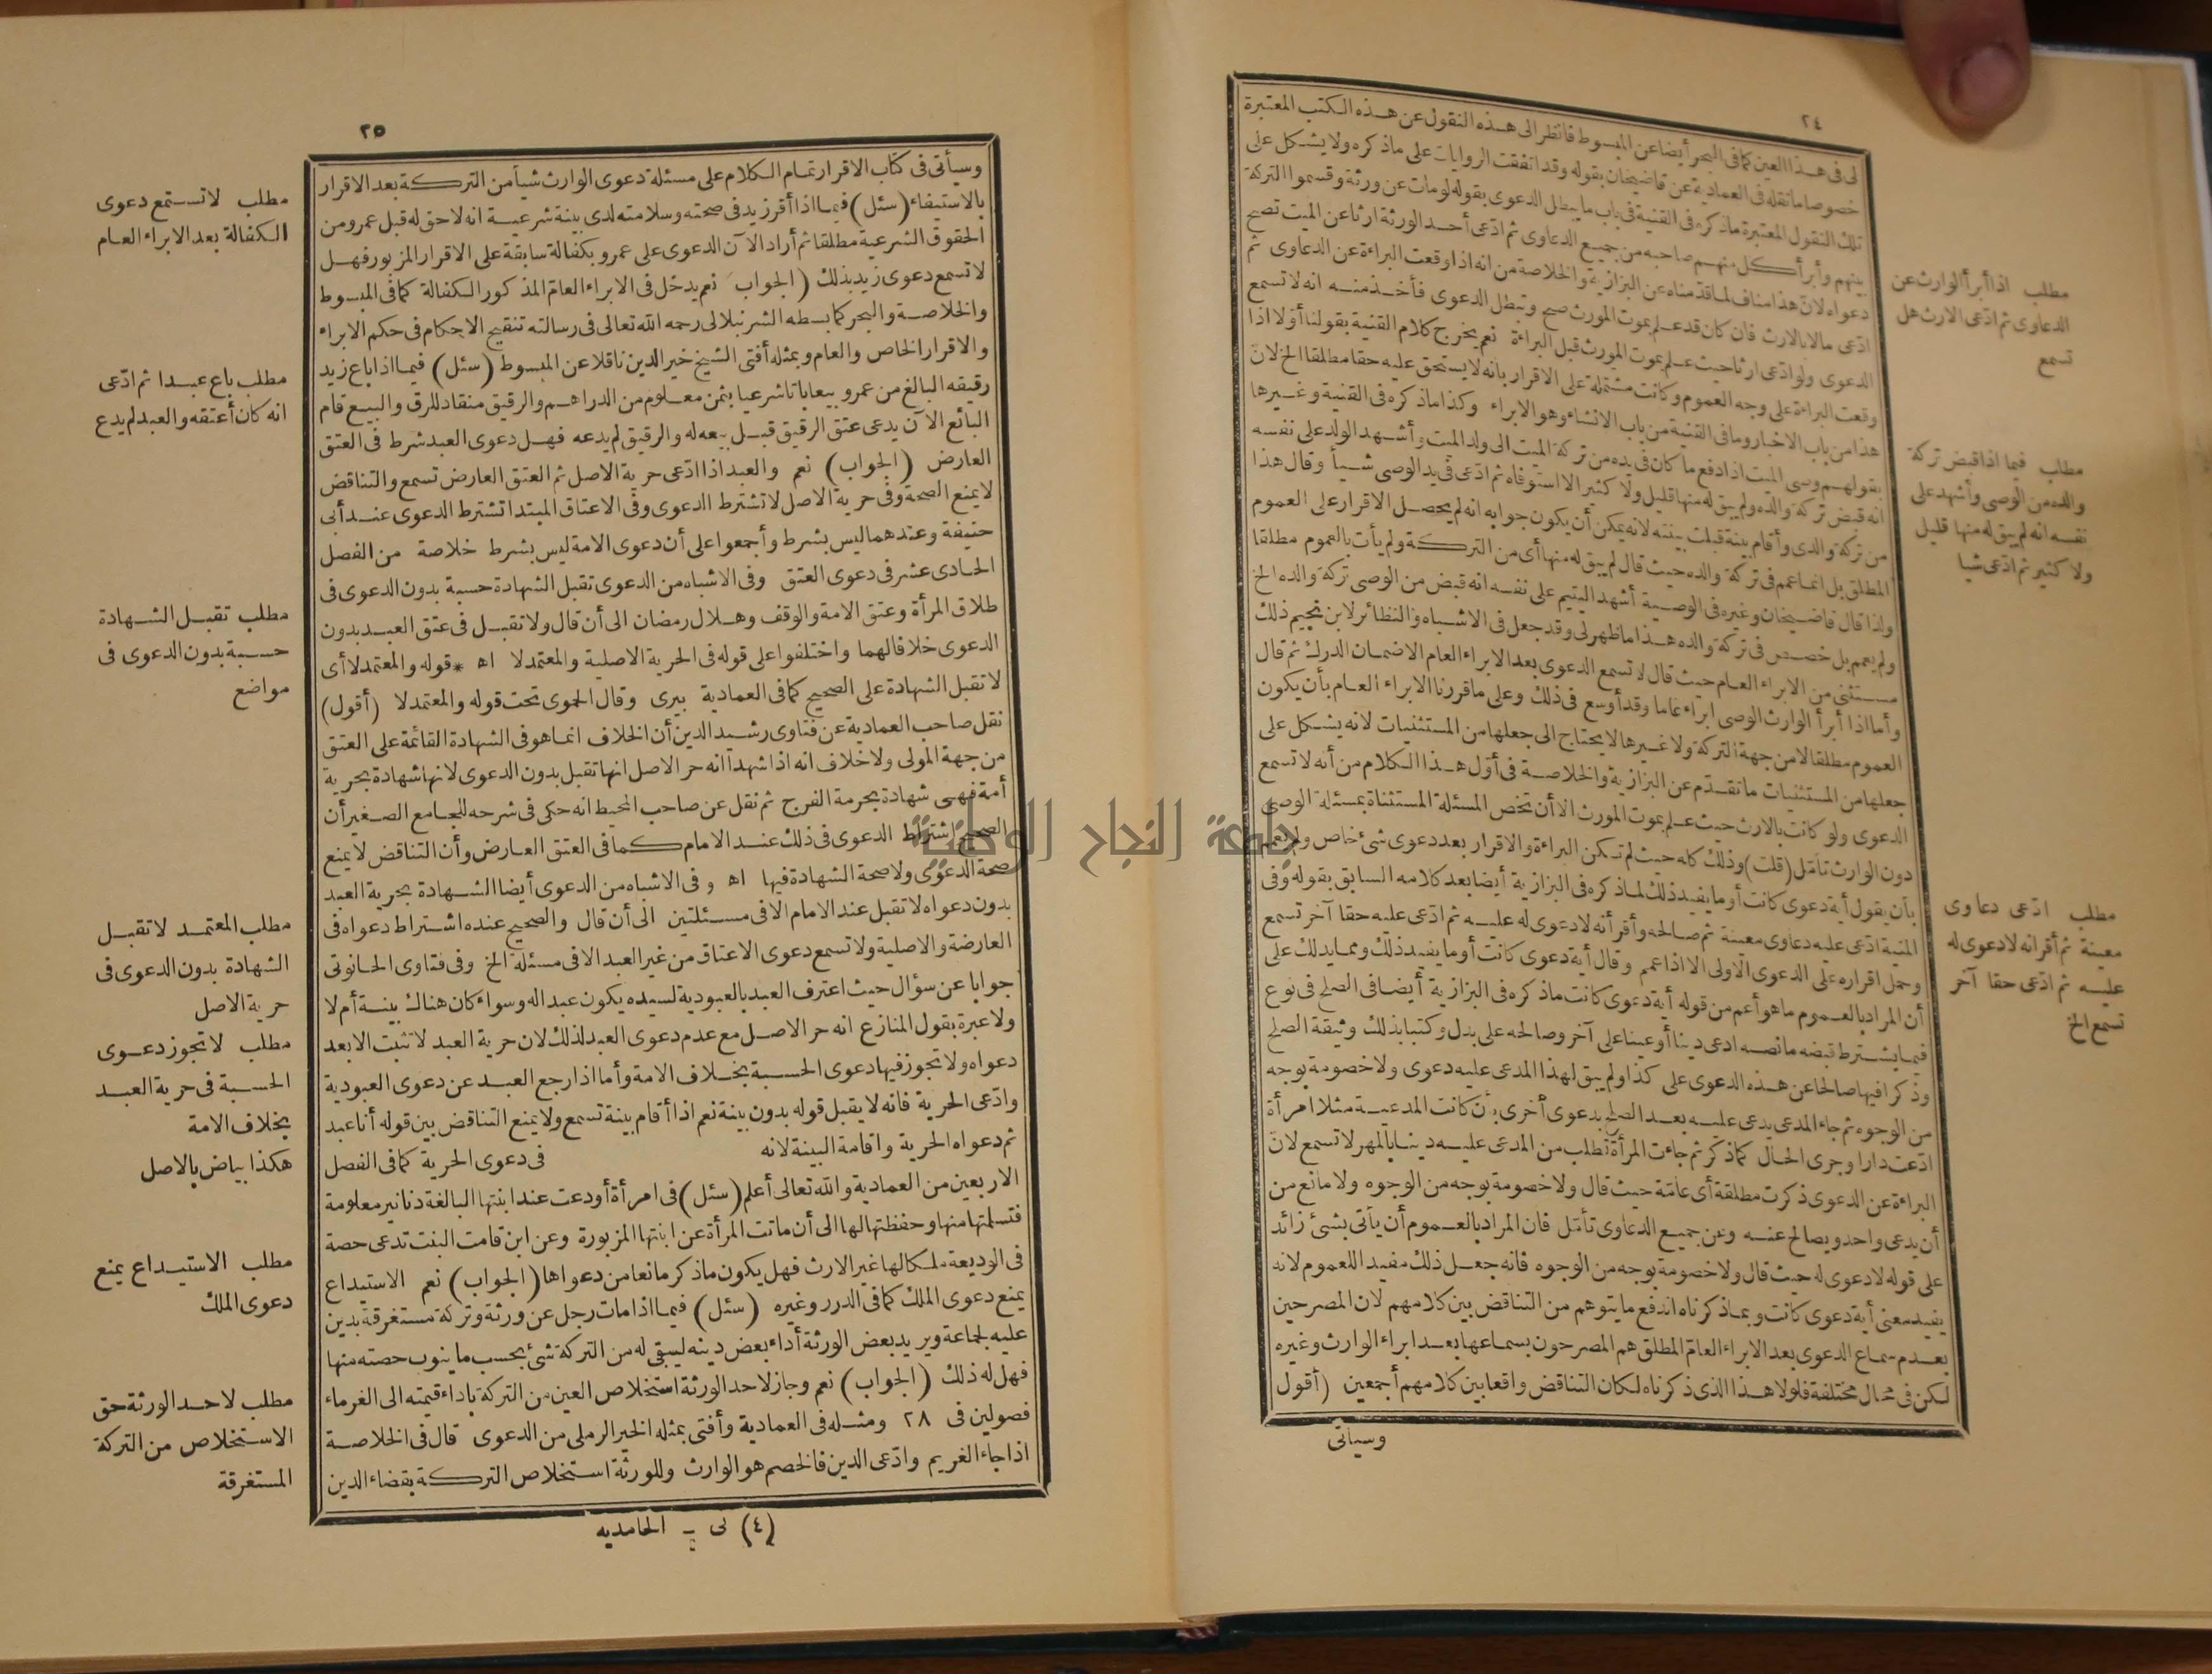 ٢٤
لى فى هذا العين كما فى البحر أيضا عن المبسوط فانظر الى هذه النقول عن هذه الكتب المعتبرة
خصوصا ما نقله فى العمادية عن قاضيخان بقوله وقد اتفقت الروايات على ماذكره ولا يشكل على
تلك النقول المعتبرة ماذكره فى القنية فى باب ما يبطل الدعوى بقوله لو مات عن ورثة وقسموا التركة
بينهم وأبرأ كل منهم صاحبه من جميع الدعاوى ثم ادّعى أحد الورثة ارثا عن الميت تصح
دعواه لان هذا مناف لما قدّمناه عن البزازية والخلاصة من انه اذا وقعت البراءة عن الدعاوى ثم
ادّعى مالا بالارث فان كان قد علم بموت المورث صح وتبطل الدعوى فأخذ منه انه لا تسمع
الدعوى ولو ادّعى ارثا حيث علم بموت المورث قبل البراءة نعم يخرج كلام القنية بقولنا أوّلا اذا
وقعت البراءة على وجه العموم وكانت مشتملة على الاقرار بانه لا يستحق عليه حقا مطلقا الخ لان
هذا من باب الاخبار وما فى القنية من باب الانشاء وهو الابراء وكذا ماذكره فى القنية وغيرها
بقولهم وصى الميت اذا دفع ما كان فى يده من تركة الميت الى ولد الميت وأشهد الولد على نفسه
انه قبض تركة والده ولم يبق له منها قليل ولا كثير الا استوفاه ثم ادّعى فى يد الوصى شيأ وقال هذا
من تركة والدى وأقام بينة قبلت بينته لانه يمكن أن يكون جوابه انه لم يحصل الاقرار على العموم
المطلق بل انما عمم فى تركة والده حيث قال لم يبق له منها أى من التركة ولم يأت بالعموم مطلقا
ولذا قال قاضيخان وغيره فى الوصية أشهد اليتيم على نفسه انه قبض من الوصى تركة والده الخ
ولم يعمم بل خصص فى تركة والده هذا ماظهر لى وقد جعل فى الاشباه والنظائر لابن نجيم ذلك
مستثنى من الابراء العام حيث قال لا تسمع الدعوى بعد الابراء العام الا ضمان الدرك ثم قال
وأما اذا أبرأ الوارث الوصى ابراء عاما وقد أوسع فى ذلك وعلى ماقررنا الابراء العام بأن يكون
العموم مطلقا لا من جهة التركة ولا غيرها لا يحتاج الى جعلها من المستثنيات لانه يشكل على
جعلها من المستثنيات ما تقدّم عن البزازية والخلاصة فى أوّل هذا الكلام من أنه لا تسمع
الدعوى ولو كانت بالارث حيث علم بموت المورث الا أن تخص المسئلة المستثناة بمسئلة الوصى
دون الوارث تأمّل (قلت) وذلك كله حيث لم تكن البراءة والاقرار بعد دعوى شئ خاص ولم يعمم
بأن يقول أية دعوى كانت أو ما يفيد ذلك لماذكره فى البزازية أيضا بعد كلامه السابق بقوله وفى
المنية ادّعى عليه دعاوى معينة ثم صالحه وأقر أنه لا دعوى له عليه ثم ادّعى عليه حقا آخر تسمع
وحمل اقراره على الدعوى الاولى الا اذا عمم وقال أية دعوى كانت أو ما يفيد ذلك ومما يدلك على
أن المراد بالعموم ما هو أعم من قوله أية دعوى كانت ماذكره فى البزازية أيضا فى الصلح فى نوع
فيما يشترط قبضه مانصه ادعى دينا أو عينا على آخر وصالحه على بدل وكتبا بذلك وثيقة الصلح
وذكرا فيها صالحا عن هذه الدعوى على كذا ولم يبق لهذا المدعى عليه دعوى ولا خصومة بوجه
من الوجوه ثم جاء المدعى يدعى عليه بعد الصلح بدعوى أخرى بأن كانت المدعية مثلا امرأة
ادّعت دارا وجرى الحال كما ذكر ثم جاءت المرأة تطلب من المدعى عليه دينا بالمهر لا تسمع لان
البراءة عن الدعوى ذكرت مطلقة أى عامّة حيث قال ولا خصومة بوجه من الوجوه ولا مانع من
أن يدعى واحد ويصالح عنه وعن جميع الدعاوى تأمّل فان المراد بالعموم أن يأتى بشئ زائد
على قوله لا دعوى له حيث قال ولا خصومة بوجه من الوجوه فانه جعل ذلك مفيد اللعموم لانه
يفيد معنى أية دعوى كانت وبماذكرناه اندفع ما يتوهم من التناقض بين كلامهم لان المصرحين
بعدم سماع الدعوى بعد الابراء العامّ المطلق هم المصرحون بسماعها بعد ابراء الوارث وغيره
لكن فى محال مختلفة فلولا هذا الذى ذكرناه لكان التناقض واقعا بين كلامهم أجمعين (أقول
وسيأتى
مطلب اذا أبرأ الوارث عن
الدعاوى ثم ادّعى الارث هل
تسمع
مطلب فيما اذا قبض تركة
والده من الوصى وأشهد على
نفسه انه لم يبق له منها قليل
ولا كثير ثم ادّعى شيا
مطلب ادّعى دعاوى
معينة ثم أقر انه لا دعوى له
عليه ثم ادّعى حقا آخر
تسمع الخ
٢٥
وسيأتى فى كتاب الاقرار تمام الكلام على مسئلة دعوى الوارث شيأ من التركة بعد الاقرار
بالاستيفاء (سئل) فيما اذا أقر زيد فى صحته وسلامته لدى بينة شرعية انه لا حق له قبل عمرو من
الحقوق الشرعية مطلقا ثم أراد الآن الدعوى على عمرو بكفالة سابقة على الاقرار المزبور فهل
لا تسمع دعوى زيد بذلك (الجواب) نعم يدخل فى الابراء العامّ المذكور الكفالة كما فى المبسوط
والخلاصة والبحر كما بسطه الشرنبلالى رحمه الله تعالى فى رسالته تنقيح الاحكام فى حكم الابراء
والاقرار الخاص والعام وبمثله أفتى الشيخ خير الدين ناقلا عن المبسوط (سئل) فيما اذا باع زيد
رقيقه البالغ من عمرو بيعا باتا شرعيا بثمن معلوم من الدراهم والرقيق منقاد للرق والبيع قام
البائع الآن يدعى عتق الرقيق قبل بيعه له والرقيق لم يدعه فهل دعوى العبد شرط فى العتق
العارض (الجواب) نعم والعبد اذا ادّعى حرية الاصل ثم العتق العارض تسمع والتناقض
لا يمنع الصحة وفى حرية الاصل لا تشترط الدعوى وفى الاعتاق المبتدا تشترط الدعوى عند أبى
حنيفة وعندهما ليس بشرط وأجمعوا على أن دعوى الامة ليس بشرط خلاصة من الفصل
الحادى عشر فى دعوى العتق وفى الاشباه من الدعوى تقبل الشهادة حسبة بدون الدعوى فى
طلاق المرأة وعتق الامة والوقف وهلال رمضان الى أن قال ولا تقبل فى عتق العبد بدون
الدعوى خلافا لهما واختلفوا على قوله فى الحرية الاصلية والمعتمد لا اه *قوله والمعتمد لا أى
لا تقبل الشهادة على الصحيح كما فى العمادية بيرى وقال الحموى تحت قوله والمعتمد لا (أقول)
نقل صاحب العمادية عن فتاوى رشيد الدين أن الخلاف انما هو فى الشهادة القائمة على العتق
من جهة المولى ولا خلاف انه اذا شهدا انه حر الاصل انها تقبل بدون الدعوى لانها شهادة بحرية
أمة فهى شهادة بحرمة الفرج ثم نقل عن صاحب المحيط انه حكى فى شرحه للجامع الصغير أن
الصحيح اشتراط الدعوى فى ذلك عند الامام كما فى العتق العارض وأن التناقض لا يمنع
صحة الدعوى ولا صحة الشهادة فيها اه وفى الاشباه من الدعوى أيضا الشهادة بحرية العبد
بدون دعواه لا تقبل عند الامام الا فى مسئلتين الى أن قال والصحيح عنده اشتراط دعواه فى
العارضة والاصلية ولا تسمع دعوى الاعتاق من غير العبد الا فى مسئلة الخ وفى فتاوى الحانوتى
جوابا عن سؤال حيث اعترف العبد بالعبودية لسيده يكون عبدا له وسواء كان هناك بينة أم لا
ولا عبرة بقول المنازع انه حر الاصل مع عدم دعوى العبد لذلك لان حرية العبد لا تثبت الا بعد
دعواه ولا تجوز فيها دعوى الحسبة بخلاف الامة وأما اذا رجع العبد عن دعوى العبودية
وادّعى الحرية فانه لا يقبل قوله بدون بينة نعم اذا أقام بينة تسمع ولا يمنع التناقض بين قوله أنا عبد
ثم دعواه الحرية واقامة البينة لانه فى دعوى الحرية كما فى الفصل
الاربعين من العمادية والله تعالى أعلم (سئل) فى امرأة أودعت عند ابنتها البالغة دنانير معلومة
فتسلمتها منها وحفظتها لها الى أن ماتت المرأة عن ابنتها المزبورة وعن ابن قامت البنت تدعى حصة
فى الوديعة ملكا لها غير الارث فهل يكون ماذكر مانعا من دعواها (الجواب) نعم الاستيداع
يمنع دعوى الملك كما فى الدرر وغيره (سئل) فيما اذا مات رجل عن ورثة وتركة مستغرقة بدين
عليه لجماعة ويريد بعض الورثة أداء بعض دينه ليبقى له من التركة شئ بحسب ما ينوب حصته منها
فهل له ذلك (الجواب) نعم وجاز لاحد الورثة استخلاص العين من التركة باداء قيمته الى الغرماء
فصولين فى ٢٨ ومثله فى العمادية وأفتى بمثله الخير الرملى من الدعوى قال فى الخلاصة
اذا جاء الغريم وادّعى الدين فالخصم هو الوارث وللورثة استخلاص التركة بقضاء الدين
(٤) نى - الحامديه
مطلب لا تستمع دعوى
الكفالة بعد الابراء العام
مطلب باع عبدا ثم ادّعى
انه كان أعتقه والعبد لم يدع
مطلب تقبل الشهادة
حسبة بدون الدعوى فى
مواضع
مطلب المعتمد لا تقبل
الشهادة بدون الدعوى فى
حرية الاصل
مطلب لا تجوز دعوى
الحسبة فى حرية العبد
بخلاف الامة
هكذا بياض بالاصل
مطلب الاستيداع يمنع
دعوى الملك
مطلب لاحد الورثة حق
الاستخلاص من التركة
المستغرقة
جامعة النجاح الوطنية